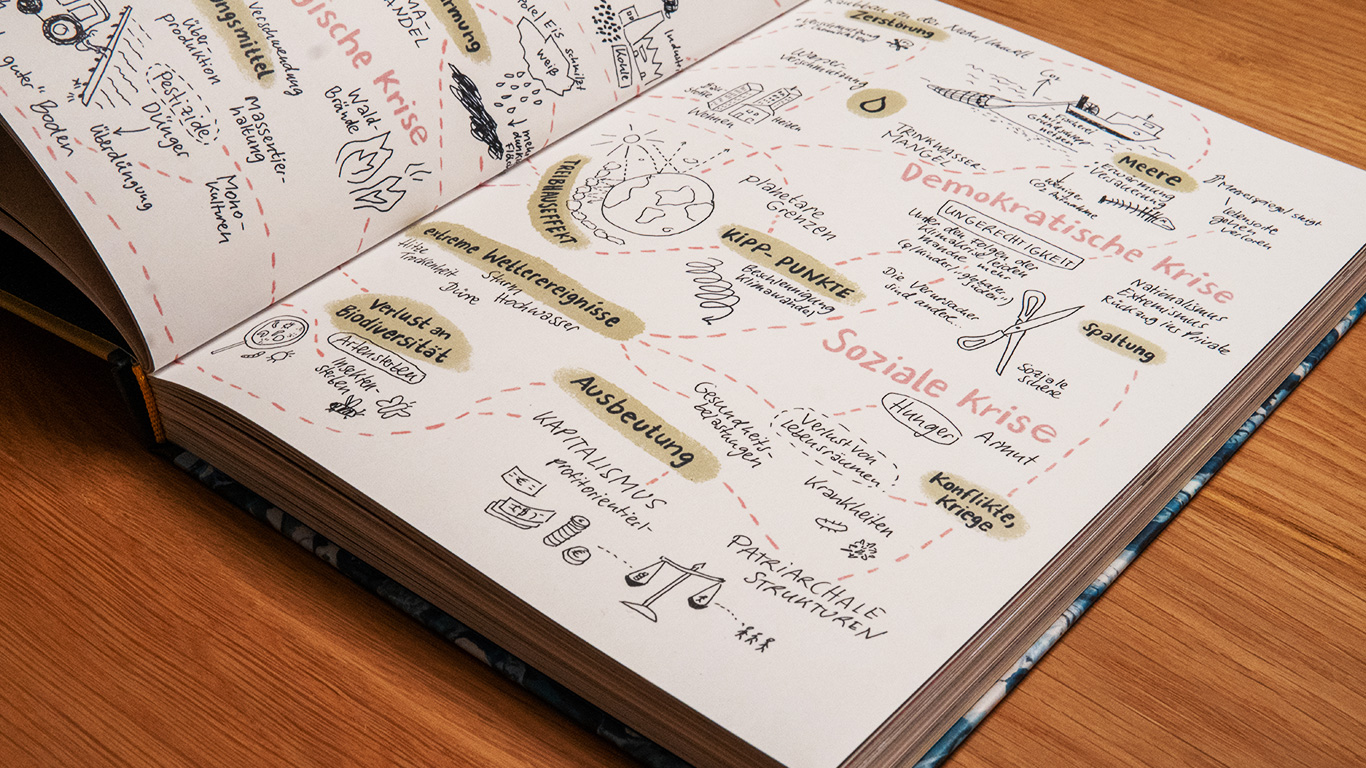 guter" Boden
Pestizide,
Dünger
überdüngung
über
produktion
ungsmittel
verschwendung
Massentier-
haltung
Mono-
kulturen
gische Krise
Wald-
Brände
MA-
ANDEL
rmung
Pole/Eis schmilzt
weiß
Kohle
Industr
Zerstörung
Wasser-
Verschmutzung
TRINKWASSER-
MANGEL
Wohnen
Heizen
TREIBHAUSEFFEKT
planetare
Grenzen
KiPP-PUNKTE
Beschleunigung
Klimawandel
extreme Wetterereignisse
Hitze
Trockenheit
Dürre
Sturm
Hochwasser
Verlust an
Biodiversität
Artensterben
Insekten-
sterben
MEERE
Erwärmung
Versauerung
Meeresspiegel steigt
Demokratische Krise
UNGERECHTIGKEIT
Unter
den Folgen der
Klimakrise leiden
manche mehr
Die Verursacher
sind andere...
Nationalismus
Extremismus
Rückzug ins Private
Spaltung
Soziale
Schere
Soziale Krise
Hunger
Armut
Ausbeutung
KAPITALISMUS
profitorientiert
Gesundheits-
belastungen
Verlust von
Lebensräumen
Krankheiten
Konflikte,
Kriege
PATRIARCHALE
STRUKTUREN